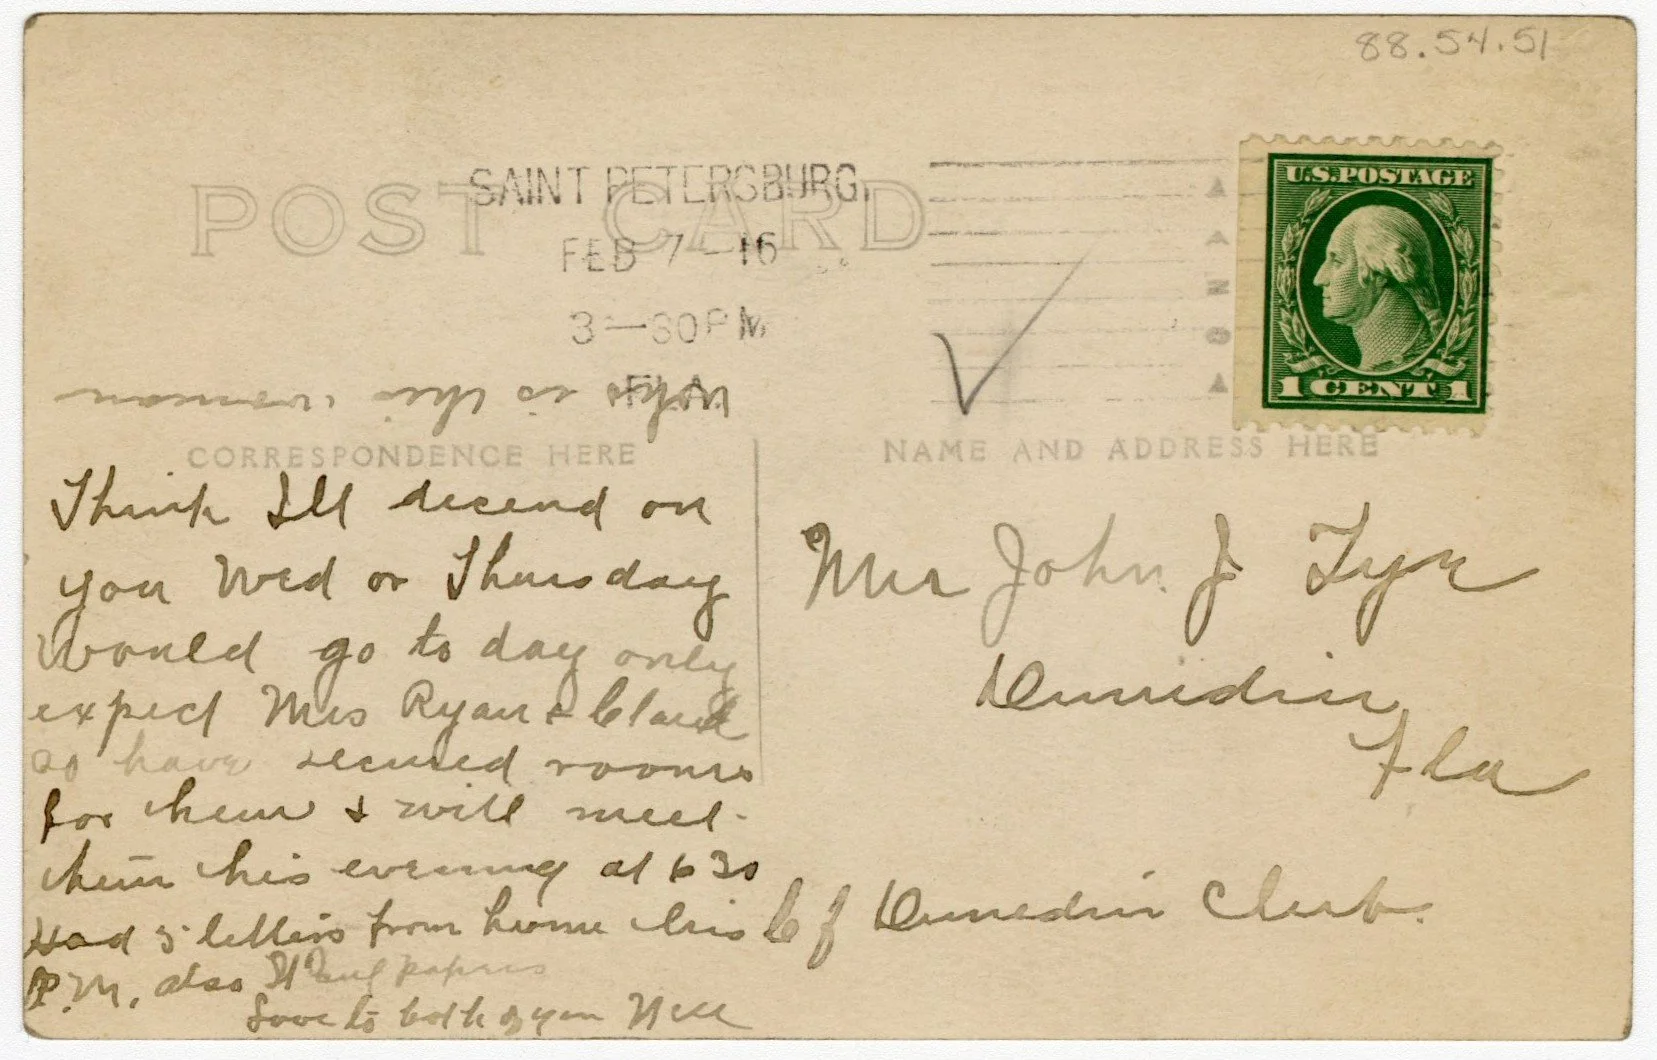 88.54.51
POST CARD
SAINT PETERSBURG,
FEB 7-16
3-30PM
FLA.
U.S.POSTAGE
1 CENT 1
CORRESPONDENCE HERE
NAME AND ADDRESS HERE
Think I'll decend on
you Wed or Thursday
would go to day only
expect Mrs Ryan &
so have secured rooms
for them & will meet
them this evening at 6 30
Had 5 letters from home this
P.M. also St Paul papers
Love to both of you
Mr John J
Dunedin
Fla
Dunedin Club.